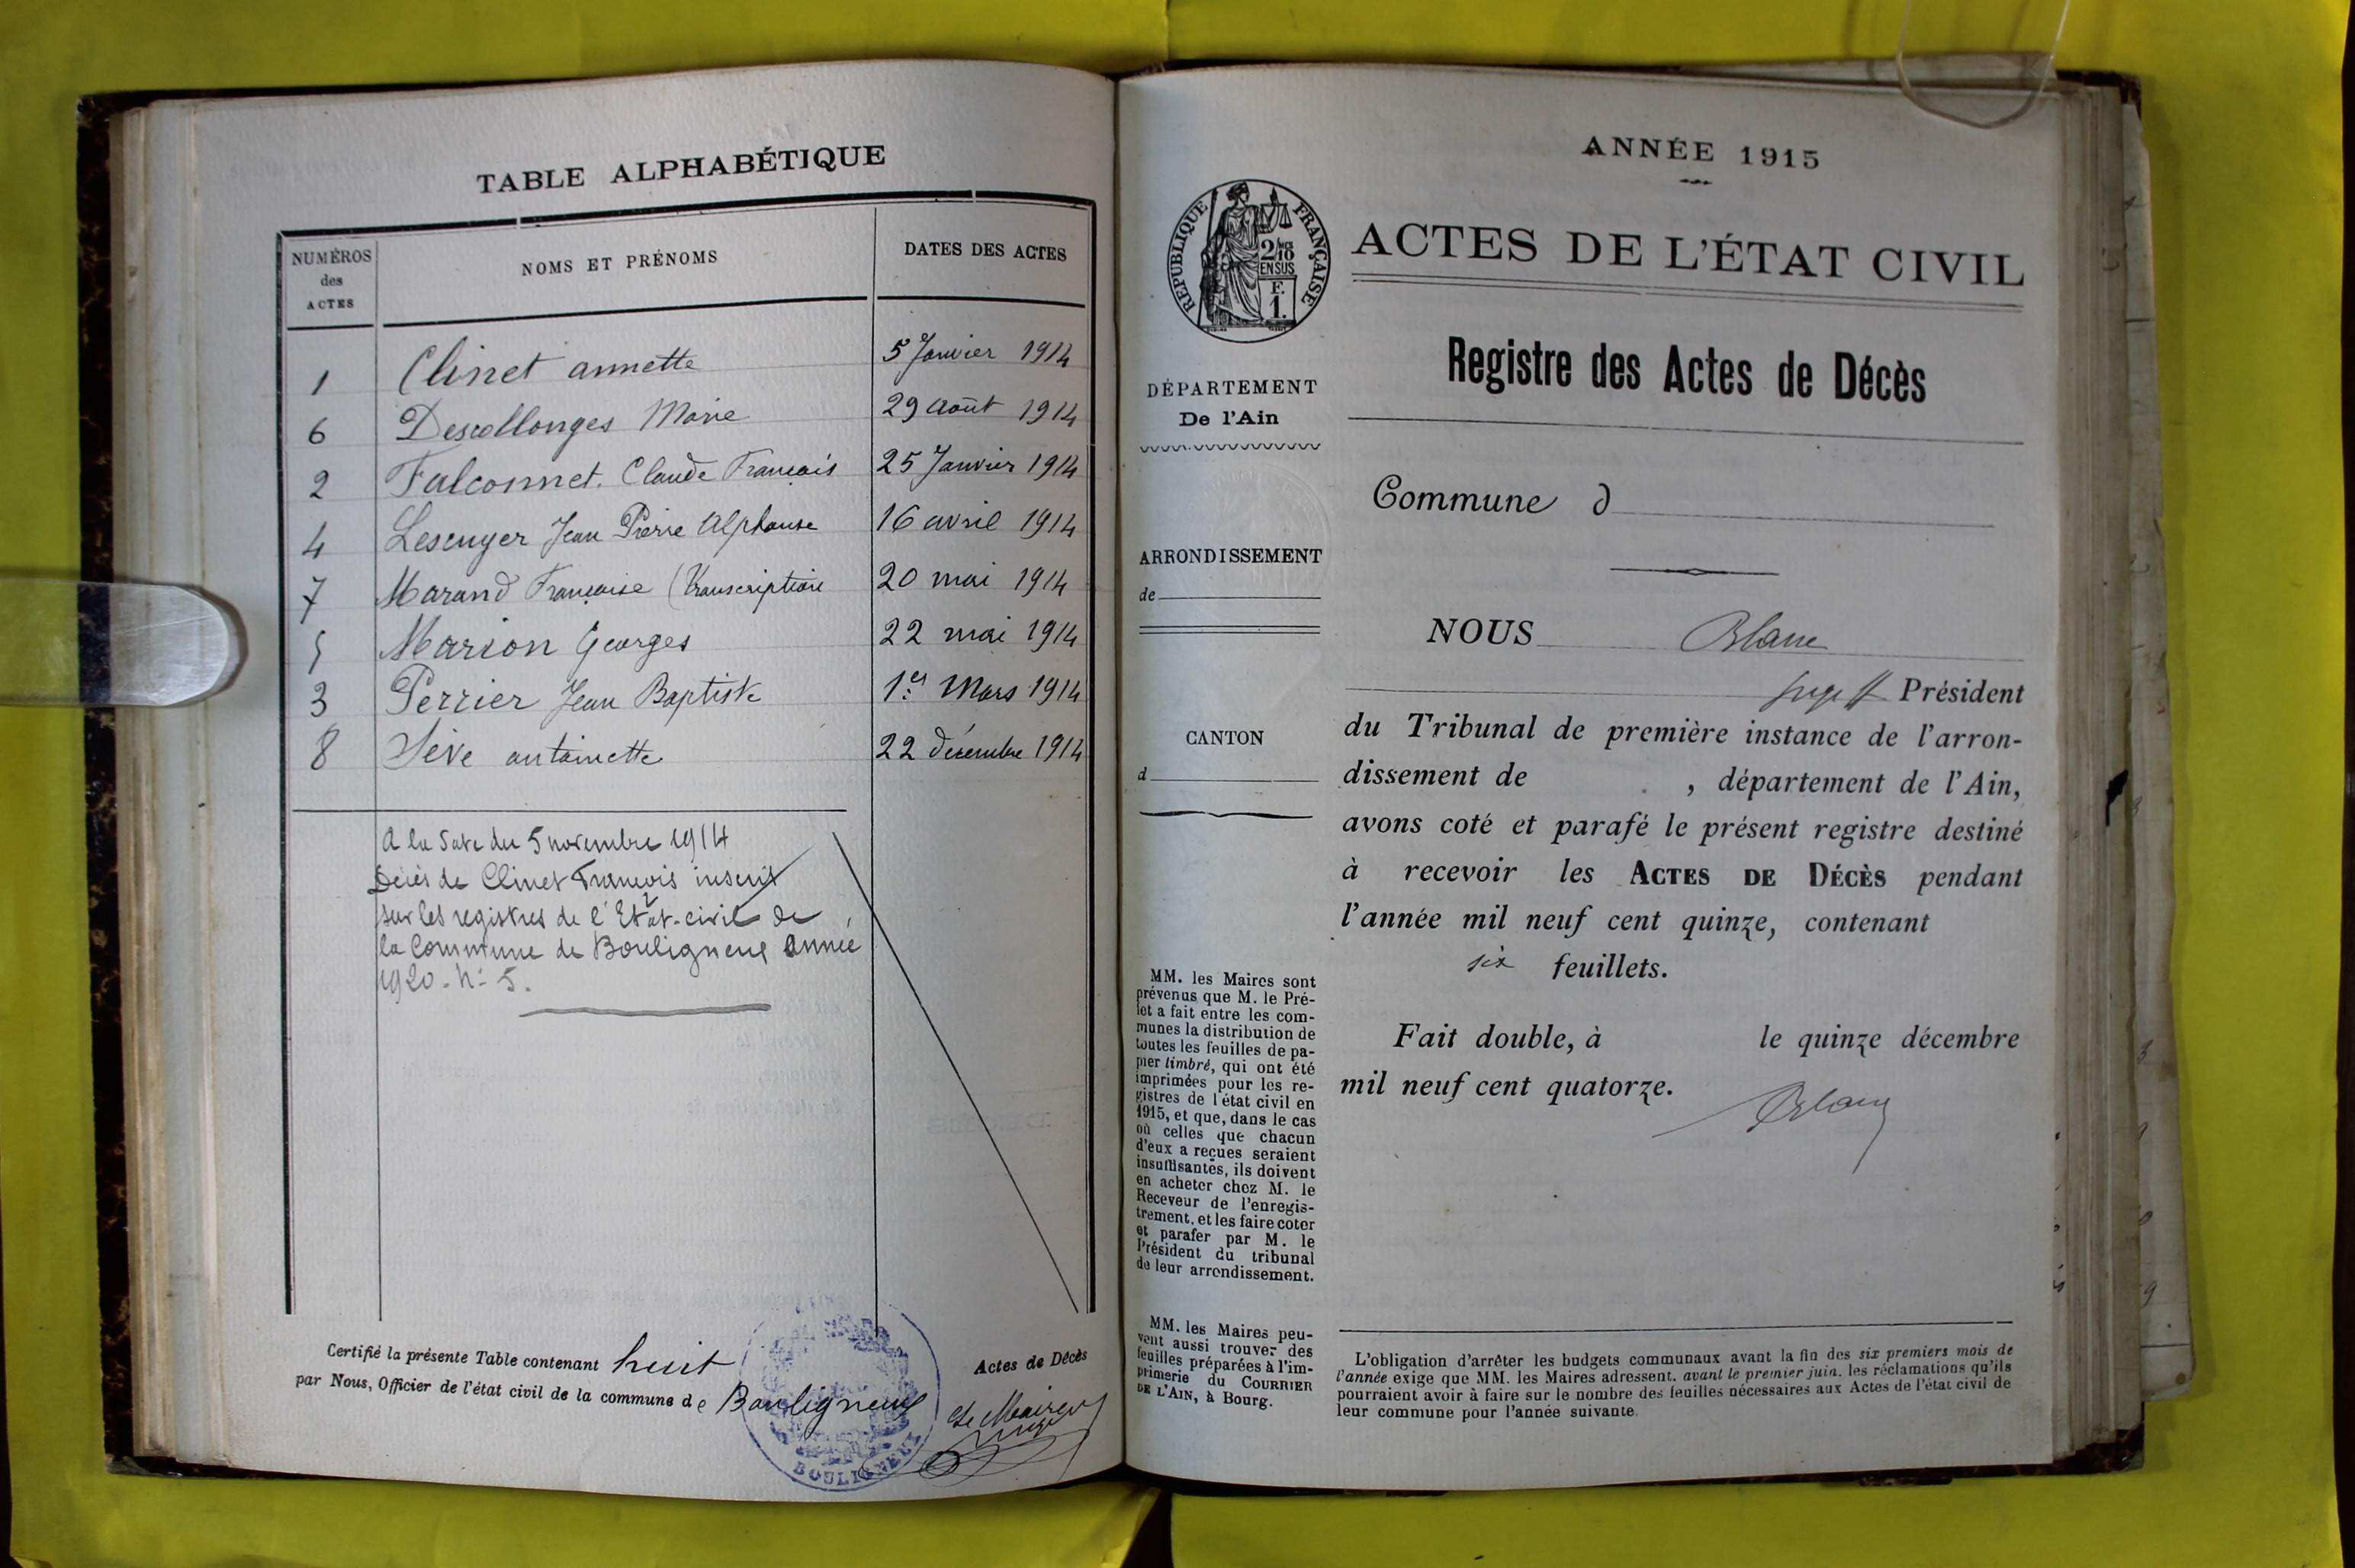 TABLE ALPHABÉTIQUE
NUMÉROS
des
ACTES
NOMS ET PRÉNOMS
DATES DES ACTES
1 Clinet annette 5 Janvier 1914
6 Descollonges Marie 29 Août 1914
2 Falconnet. Claude François 25 Janvier 1914
4 Lescuyer Jean Pierre Alphonse 16 avril 1914
7 Marand Françoise (Transcription 20 mai 1914
5 Marion Georges 22 mai 1914
3 Perrier Jean Baptiste 1er Mars 1914
8 Sève antoinette 22 décembre 1914
A la date du 5 novembre 1914
Décès de Clinet François inscrit
sur les registres de l'Etat-civil de
la Commune de Bouligneux année
1920. N: 5.
Certifié la présente Table contenant huit
par Nous, Officier de l'état civil de la commune de Bouligneux
Actes de Décès
Le Maire
BOULIGNEUX
ANNÉE 1915
RÉPUBLIQUE FRANÇAISE
2/10
EN SUS
F.
1.
ACTES DE L'ÉTAT CIVIL
Registre des Actes de Décès
DÉPARTEMENT
De l'Ain
Commune d
ARRONDISSEMENT
de
CANTON
d
NOUS Blanc
juge ff Président
du Tribunal de première instance de l'arron-
dissement de , département de l'Ain,
avons coté et parafé le présent registre destiné
à recevoir les ACTES DE DÉCÈS pendant
l'année mil neuf cent quinze, contenant
six feuillets.
Fait double, à le quinze décembre
mil neuf cent quatorze.
Blanc
MM. les Maires sont
prévenus que M. le Pré-
fet a fait entre les com-
munes la distribution de
toutes les feuilles de pa-
pier timbré, qui ont été
imprimées pour les re-
gistres de l'état civil en
1915, et que, dans le cas
où celles que chacun
d'eux a reçues seraient
insuffisantes, ils doivent
en acheter chez M. le
Receveur de l'enregis-
trement, et les faire coter
et parafer par M. le
Président du tribunal
de leur arrondissement.
MM. les Maires peu-
vent aussi trouver des
feuilles préparées à l'im-
primerie du COURRIER
DE L'AIN, à Bourg.
L'obligation d'arrêter les budgets communaux avant la fin des six premiers mois de
l'année exige que MM. les Maires adressent, avant le premier juin, les réclamations qu'ils
pourraient avoir à faire sur le nombre des feuilles nécessaires aux Actes de l'état civil de
leur commune pour l'année suivante.